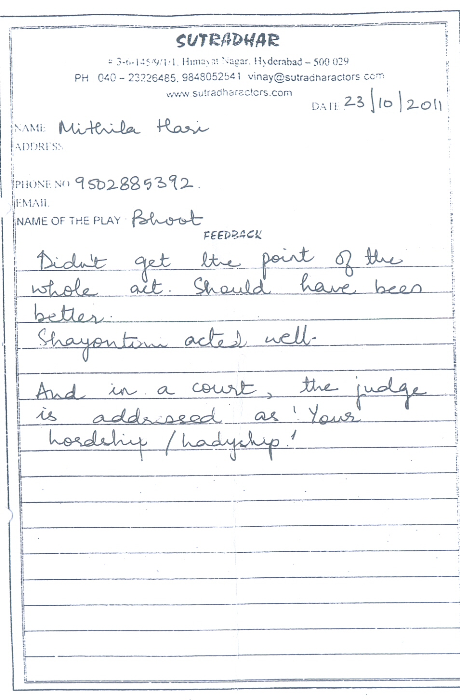 SUTRADHAR
# 3-6-145/9/1/1, Himayat Nagar, Hyderabad – 500 029
PH 040 – 23226485, 9848052541 vinay@sutradharactors.com
www.sutradharactors.com
DATE 23/10/2011
NAME Mithila Hari
ADDRESS
PHONE NO 9502885392.
EMAIL
NAME OF THE PLAY Bhoot
FEEDBACK
Didn't get the point of the
whole act. Should have been
better.
acted well.
And in a court, the judge
is addressed as 'Your
Lordship / Ladyship.'